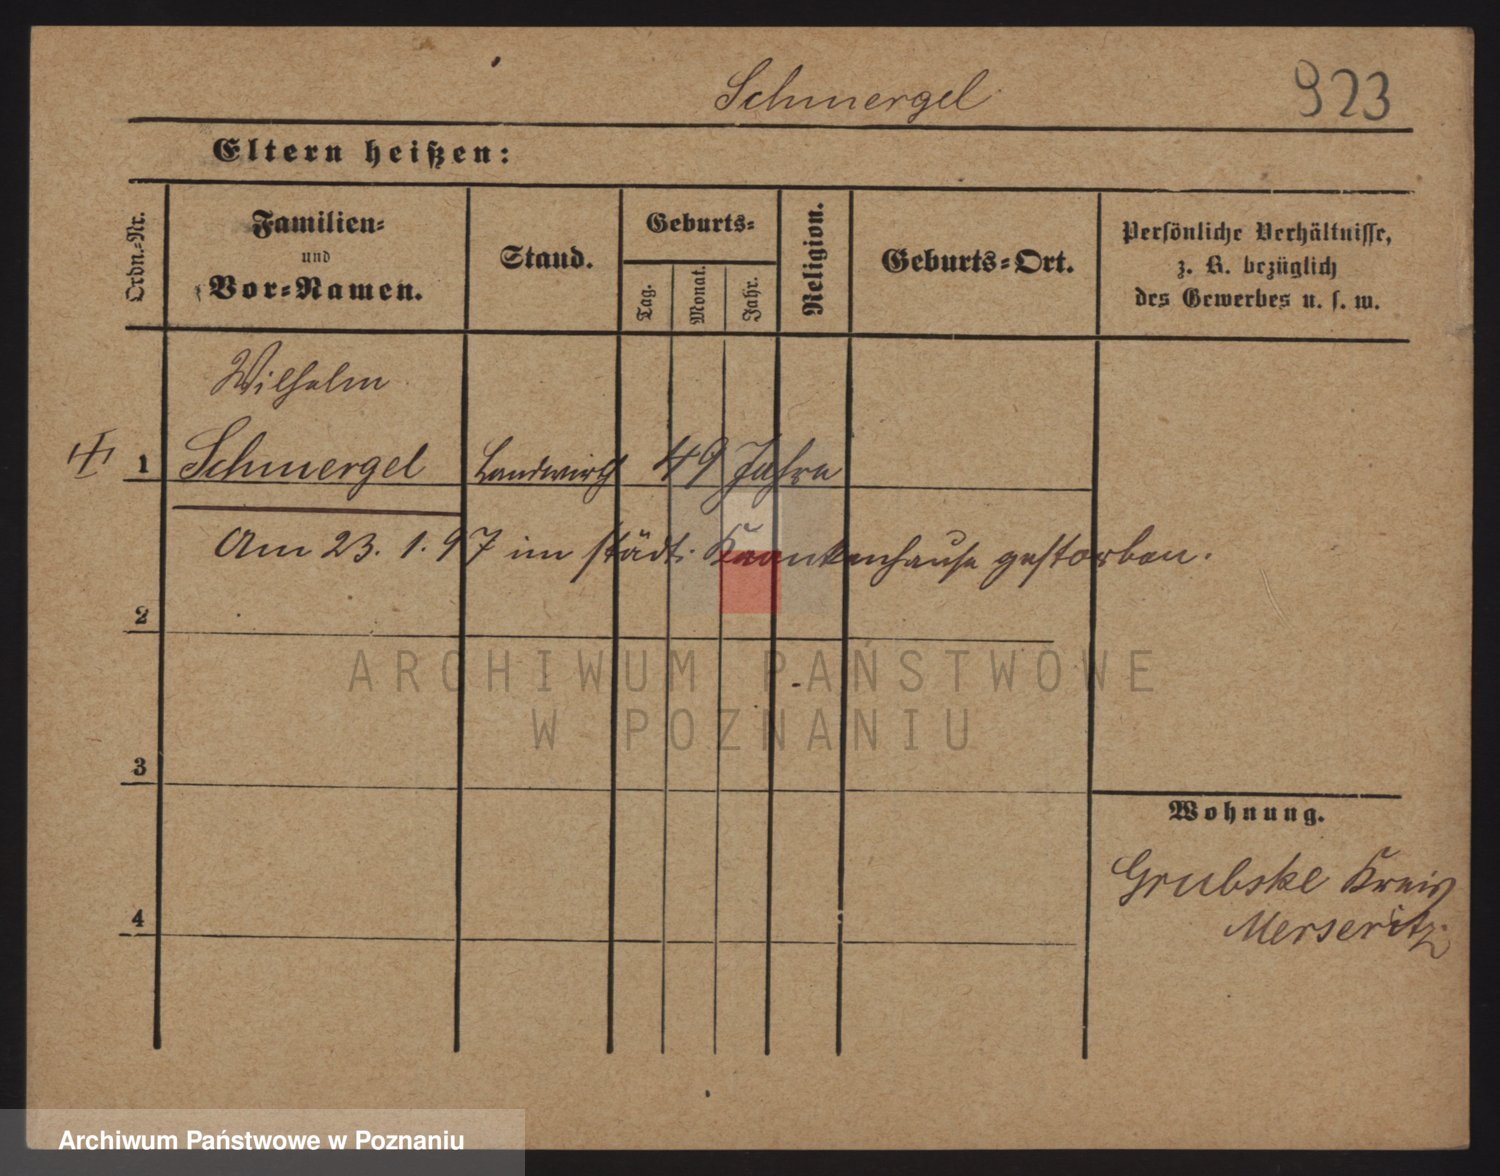 Schmergel 923
Eltern heißen:
Ordn.-Nr.
Familien-
und
Vor-Namen.
Stand.
Geburts-
Tag.
Monat.
Jahr.
Religion.
Geburts-Ort.
Persönliche Verhältnisse,
z. B. bezüglich
des Gewerbes u. s. w.
Wilhelm
1 Schmergel Landwirth 49 Jahre
Am 23. 1. 97 im städt. Krankenhause gestorben.
2
ARCHIWUM PAŃSTWOWE
W POZNANIU
3
Wohnung.
Grubske Kreis
Merseritz
4
Archiwum Państwowe w Poznaniu